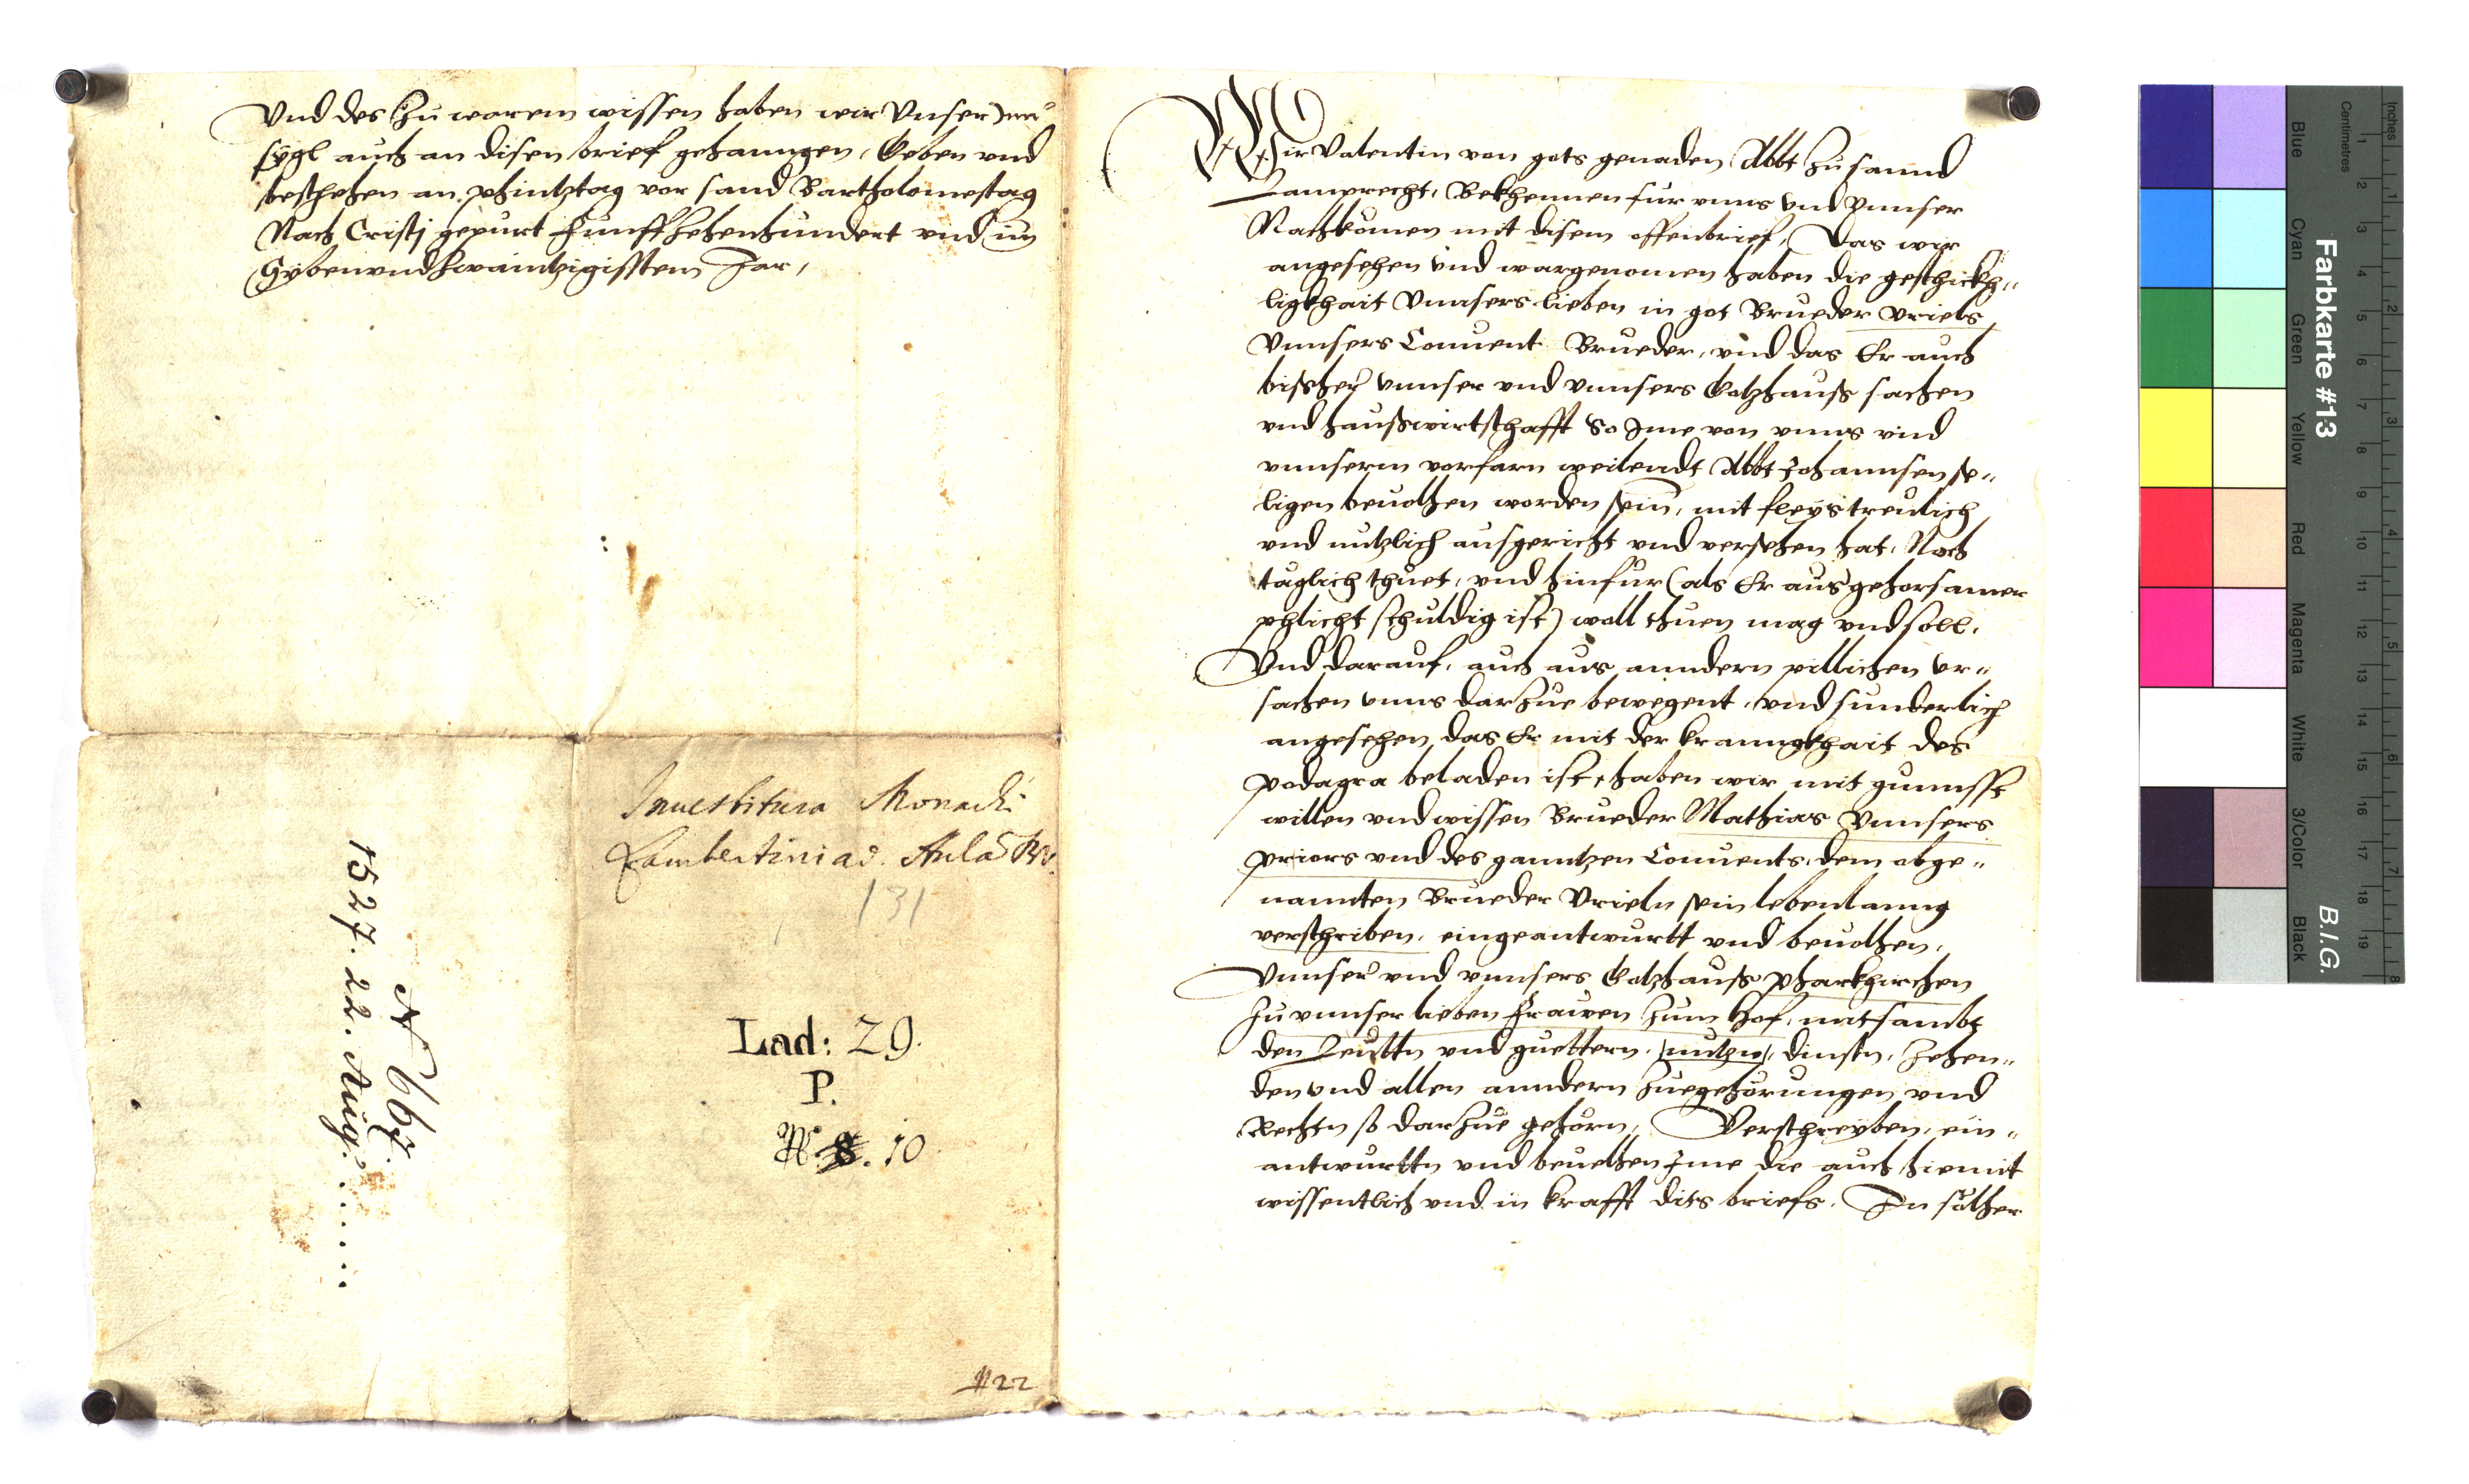 Vnd des zu warem wissen haben wir Vnser
sygl auch an disen brief gehanngen, Geben vnd
beschehen an phintztag vor sand Bartholomestag
Nach Cristj gepurt Funffzehenhundert vnd im
Sybenvndzwaintzigisstem Jar,
Inuestitura Monachi
Lambertini ad Aulã BV.
131
Lad: 29.
P.
N. 8. 10
1122
N 667.
1527. 22. Aug: ......
Wir Valentin von gots genaden Abbt zu sannd
Lamprecht, Bekhennen fur vnns vnd Vnnser
Nachkomen mit disem offenbrief, Das wir
angesehen vnd wargenomen haben die geschickh„
ligkhait Vnnsers lieben in got Brueder Vriels
Vnnsers Conuent Brueder, vnd das Er auch
bißher vnnser vnd vnnsers Gotzhauß sachen
vnd haußwirtschafft So Ime von vnns vnd
vnnserm vorfarn weilendt Abbt Johannsen se„
ligen beuolhen worden sein, mit fleys treulich
vnd nutzlich ausgericht vnd versehen hat, Noch
taglich thuet, vnd hinfur (als Er aus gehorsamer
phlicht schuldig ist) woll thuen mag vnd soll.
Vnd darauf, auch aus anndern pillichen vr„
sachen vnns darzue bewegent, vnd sunderlich
angesehen das Er mit der kranngkhait des
podagra beladen ist, haben wir mit gunnsst
willen vnd wissen Brueder Mathias Vnnsers
priors vnd des ganntzen Conuents, dem obge„
nannten Brueder Vrieln sein lebenlanng
verschriben, eingeantwurtt vnd beuolhen,
Vnnser vnd vnnsers Gotzhauß pharkhirchen
zu vnnser lieben Frawen zum Hof, mitsambt
den Leuttn vnd guettern, nutzn, dinstn, zehen„
den vnd allen anndern zuegehorungen vnd
Rechtn so darzue gehorn, Verschreyben, ein„
antwurttn vnd beuelhen Ime die auch hiemit
wissentlich vnd in krafft dits briefs. In solher
Farbkarte #13
B.I.G.
Centimetres
Inches
Blue
Cyan
Green
Yellow
Red
Magenta
White
3/Color
Black
1 2 3 4 5 6 7 8 9 10 11 12 13 14 15 16 17 18 19
1 2 3 4 5 6 7 8